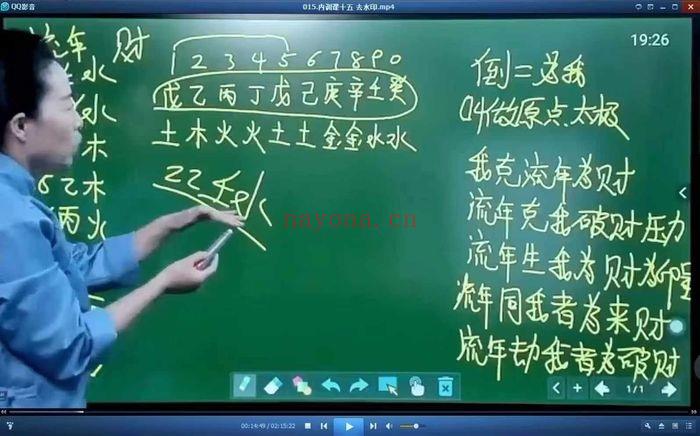 QQ影音
015.内训课十五 去水印.mp4
19:26
流年 财
水
水
木
乙木
丙火
1 2 3 4 5 6 7 8 9 0
戊乙丙丁戊己庚辛壬癸
土木火火土土金金水水
22年
nayona.cn
倒二为我
的原点太极
我克流年为财
流年克我破财压力
流年生我为财为印星
流年同我者为来财
流年劫我者为破财
1/1
00:14:49 / 02:15:22